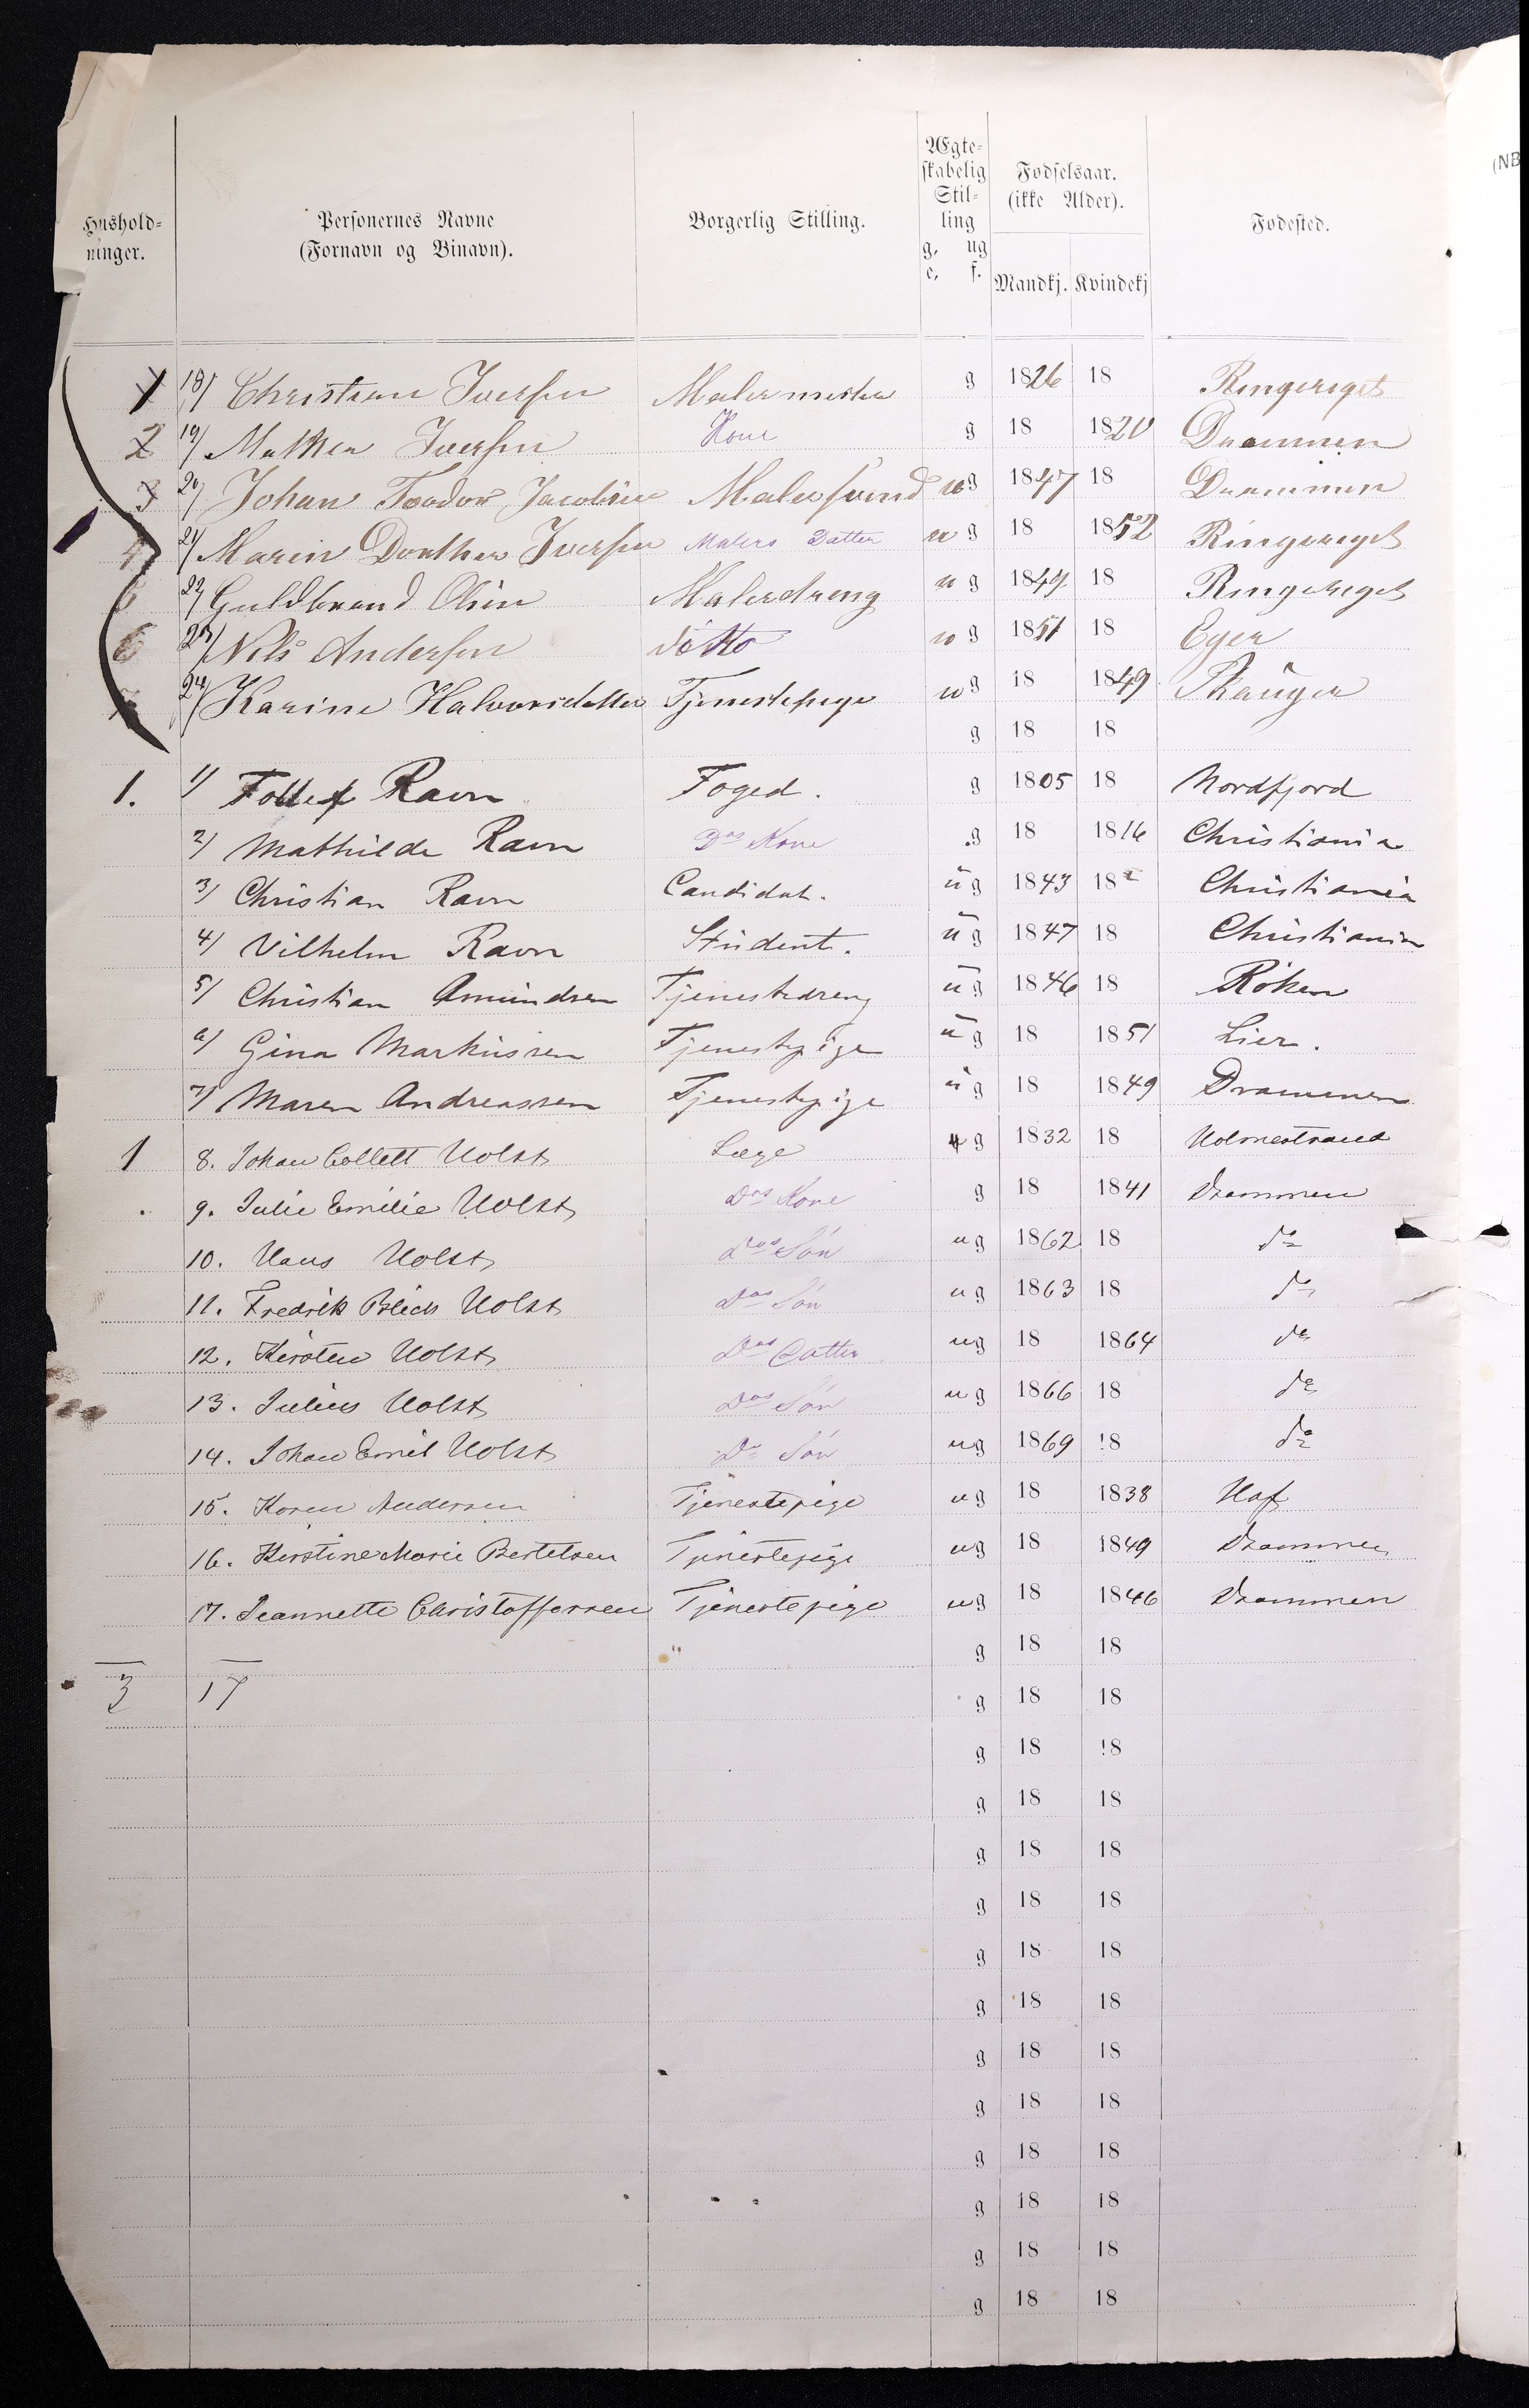 Hushold-ninger. Personernes Navne (Fornavn og Binavn). Borgerlig Stilling. Ægte-skabelig Stil-ling g. ug e. f. Fødselsaar. (ikke Alder). Mandkj. Kvindekj Fødested.
1 18/ Christian Iversen Malermester g 1826 18 Ringeriget
2 19/ Mathea Iversen Kone g 18 1820 Drammen
3 20/ Johan Teodor Jacobsen Malersvend ug 1847 18 Drammen
4 21/ Maren Dorthea Iversen Malers Datter ug 18 1852 Ringeriget
5 22/ Guldbrand Olsen Malerdreng ug 1849 18 Ringeriget
6 23/ Nils Andersen ditto ug 1851 18 Eger
7 24/ Karine Halvorsdatter Tjenestepige ug 18 1849 Skauger
g 18 18
1. 1/ Tollef Ravn Foged. g 1805 18 Nordfjord
2/ Mathilde Ravn Das Kone g 18 1816 Christiania
3/ Christian Ravn Candidat. ug 1843 18 Christiania
4/ Vilhelm Ravn Student. ug 1847 18 Christiania
5/ Christian Amundsen Tjenestedreng ug 1846 18 Röken
6/ Gina Markussen Tjenestepige ug 18 1851 Lier.
7/ Maren Andreassen Tjenestepige ug 18 1849 Drammen
1 8. Johan Collett Holst Læge g 1832 18 Holmestrand
9. Julie Emilie Holst Das Kone g 18 1841 Drammen
10. Hans Holst Das Søn ug 1862 18 do
11. Fredrik Blich Holst Das Søn ug 1863 18 do
12. Kirsten Holst Das Datter ug 18 1864 do
13. Julius Holst Das Søn ug 1866 18 do
14. Johan Emil Holst Ds Søn ug 1869 18 do
15. Karen Andersen Tjenestepige ug 18 1838 Hof
16. Kirstine Marie Bertelsen Tjenestepige ug 18 1849 Drammen
17. Jeannette Christoffersen Tjenestepige ug 18 1846 Drammen
g 18 18
3 17 g 18 18
g 18 18
g 18 18
g 18 18
g 18 18
g 18 18
g 18 18
g 18 18
g 18 18
g 18 18
g 18 18
g 18 18
g 18 18
(NB